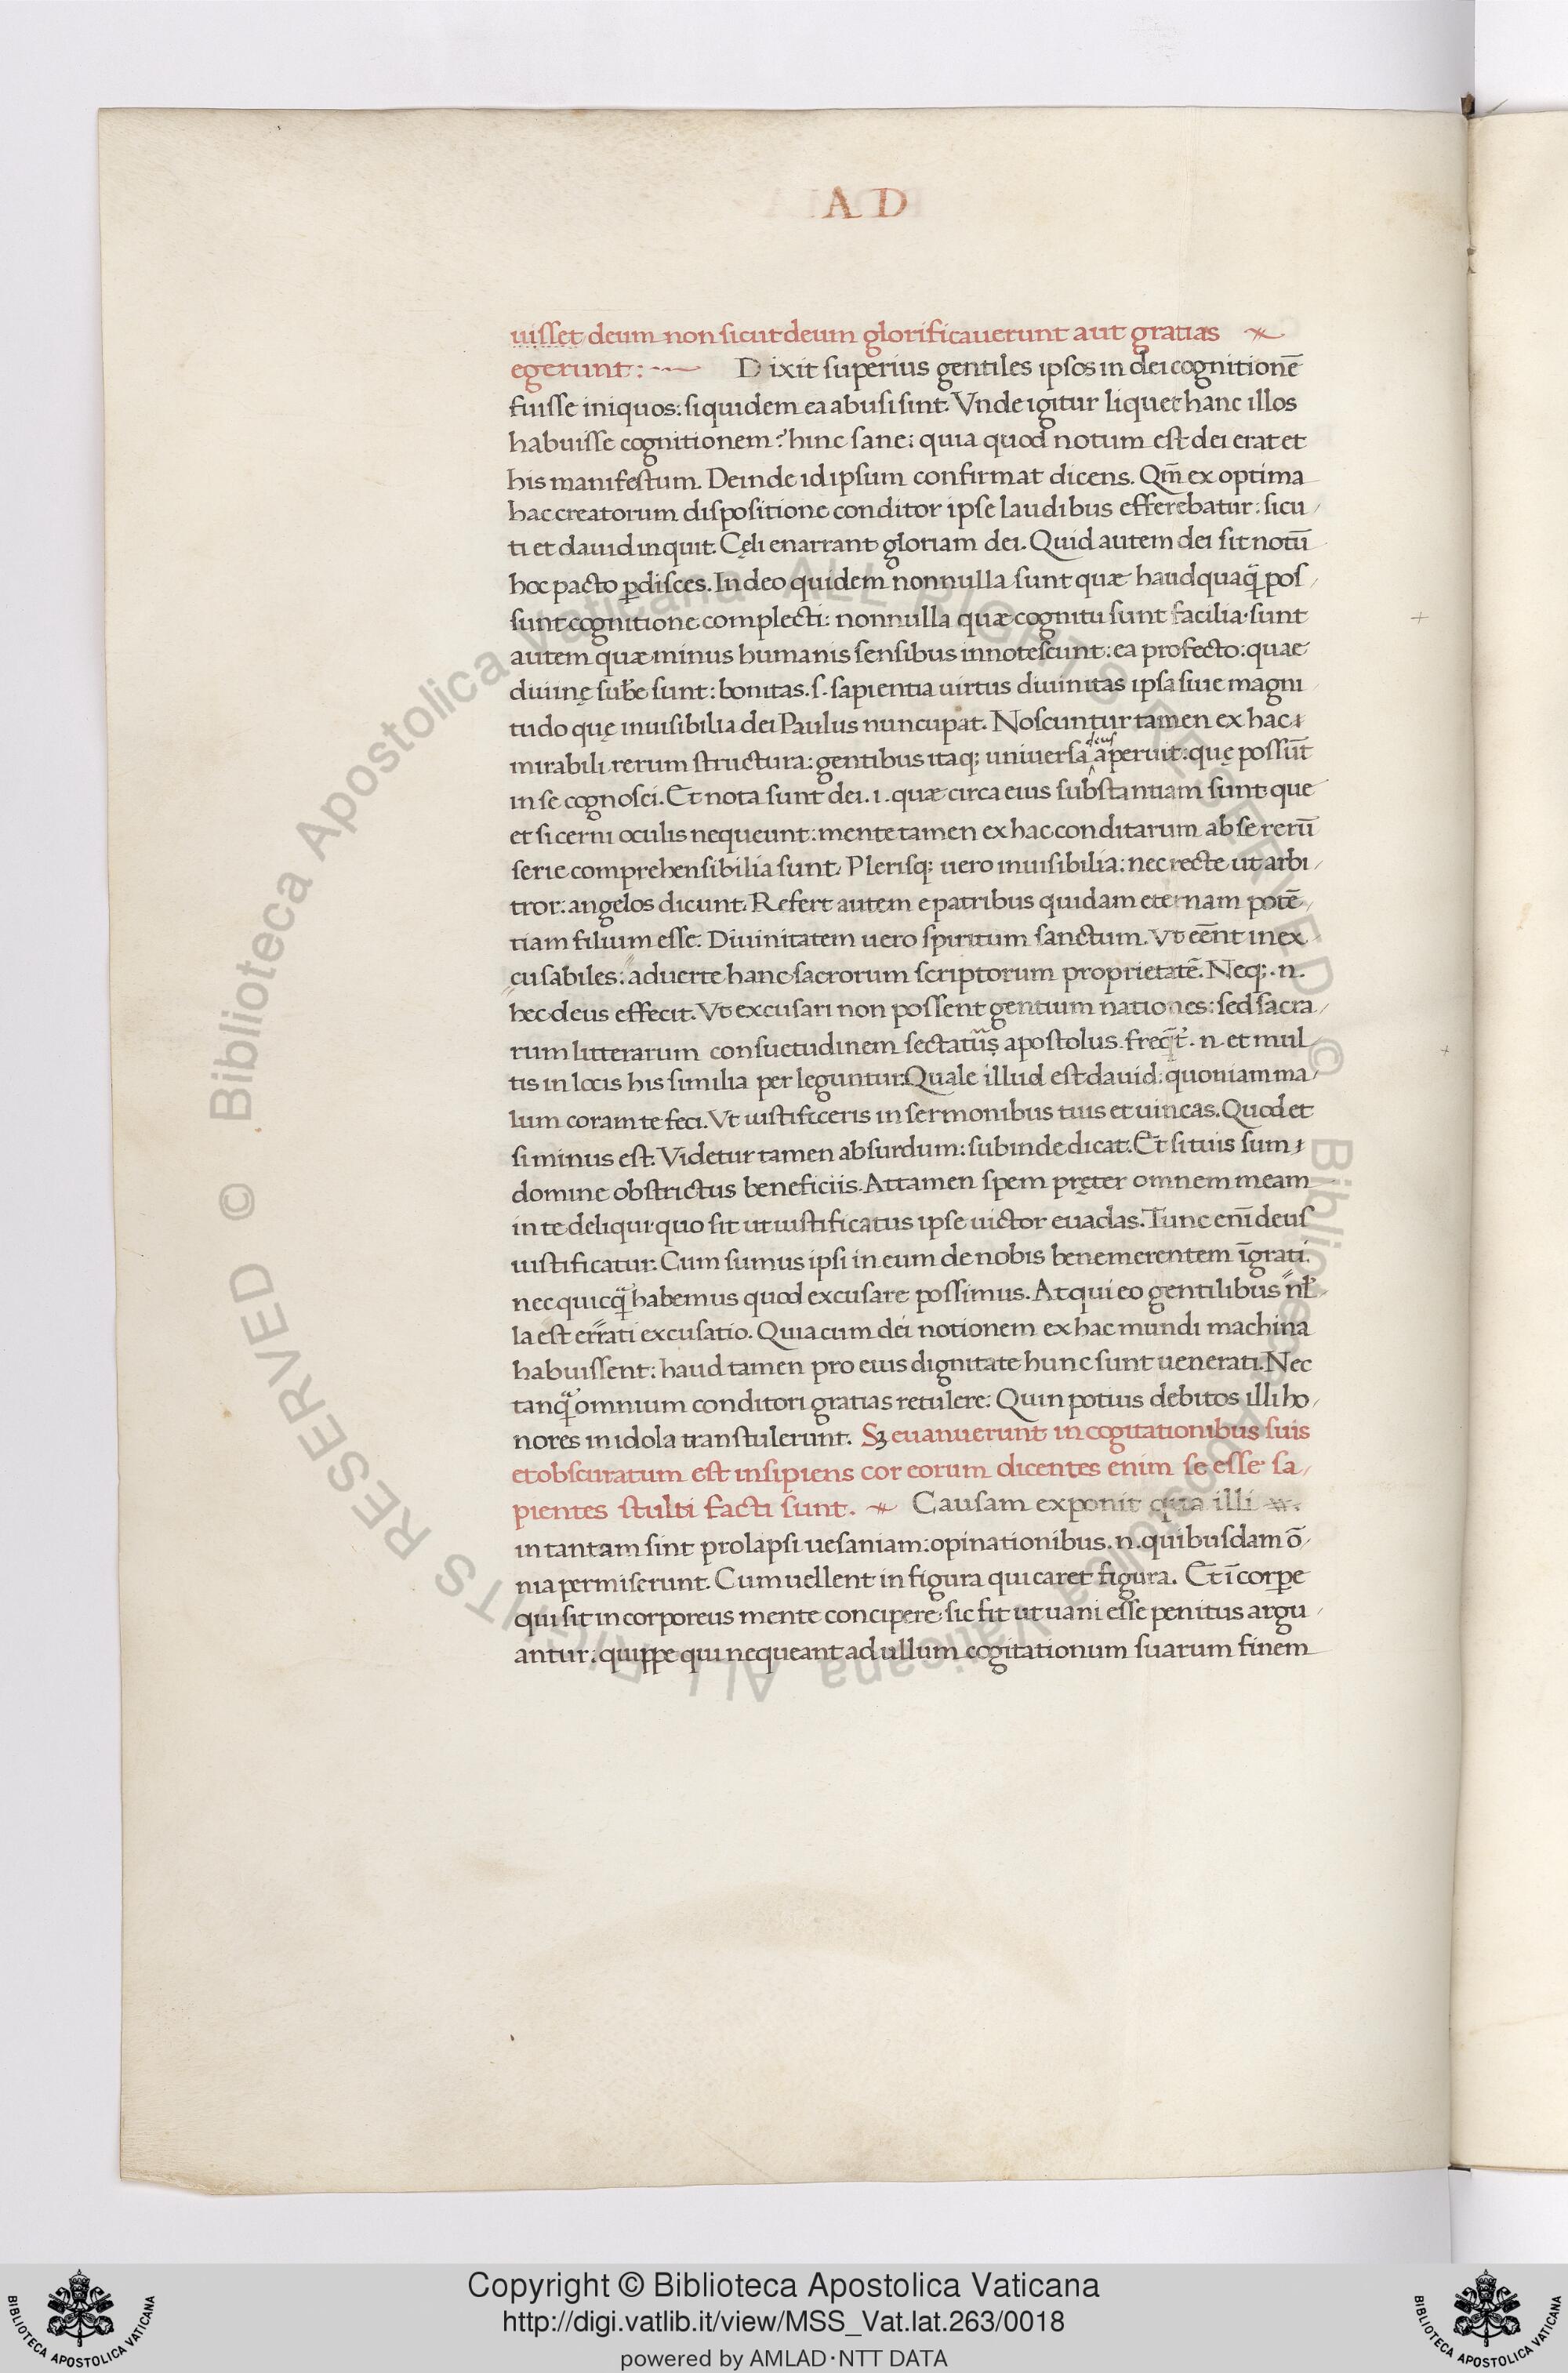 A D
uisset deum non sicut deum glorificauerunt aut gratias
egerunt: Dixit superius gentiles ipsos in dei cognitionē
fuisse iniquos: siquidem ea abusi sint. Vnde igitur liquet hanc illos
habuisse cognitionem? hinc sane: quia quod notum est dei erat et
his manifestum. Deinde idipsum confirmat dicens. Qm̄ ex optima
hac creatorum dispositione conditor ipse laudibus efferebatur: sicu
ti et dauid inquit. Cęli enarrant gloriam dei. Quid autem dei sit notū
hoc pacto ꝑdisces. In deo quidem nonnulla sunt quæ haudquaq̄ pos
sunt cognitione complecti: nonnulla quæ cognitu sunt facilia. sunt
autem quæ minus humanis sensibus innotescunt: ea profecto: quae
diuinę sub̄e sunt: bonitas. s. sapientia uirtus diuinitas ipsa siue magni
tudo quę inuisibilia dei Paulus nuncupat. Noscuntur tamen ex hac
mirabili rerum structura: gentibus itaq; uniuersa deus aperuit: quę possūt
in se cognosci. Et nota sunt dei. i. quæ circa eius substantiam sunt que
et si cerni oculis nequeunt: mente tamen ex hac conditarum ab se rerū
serie comprehensibilia sunt. Plerisq; uero inuisibilia: nec recte ut arbi
tror: angelos dicunt. Refert autem e patribus quidam eternam potē
tiam filium esse. Diuinitatem uero spiritum sanctum. Vt eēnt inex
cusabiles: aduerte hanc sacrorum scriptorum proprietatē. Neq;. n.
hec deus effecit. Vt excusari non possent gentium nationes: sed sacra
rum litterarum consuetudinem sectatus apostolus. freq̄t̓. n. et mul
tis in locis his similia per leguntur. Quale illud est dauid: quoniam ma
lum coram te feci. Vt iustificeris in sermonibus tuis et uincas. Quod et
si minus est. Videtur tamen absurdum: subinde dicat. Et si tuis sum
domine obstrictus beneficiis. Attamen spem pręter omnem meam
in te deliqui quo sit ut iustificatus ipse uictor euadas. Tunc eni̅ deus
iustificatur. Cum sumus ipsi in eum de nobis benemerentem īgrati
nec quicq̄ habemus quod excusare possimus. Atqui eo gentilibus nl̓
la est errati excusatio. Quia cum dei notionem ex hac mundi machina
habuissent: haud tamen pro eius dignitate hunc sunt uenerati. Nec
tanq̄ omnium conditori gratias retulere. Quin potius debitos illi ho
nores in idola transtulerunt. Sꝫ euanuerunt in cogitationibus suis
et obscuratum est insipiens cor eorum dicentes enim se esse sa
pientes stulti facti sunt. Causam exponit qua illi
in tantam sint prolapsi uesaniam: opinationibus. n. quibusdam ō
nia permiserunt. Cum uellent in figura qui caret figura. Et ī corꝑe
qui sit incorporeus mente concipere. sic fit ut uani esse penitus argu
antur: quippe qui nequeant ad ullum cogitationum suarum finem
© Biblioteca Apostolica Vaticana ALL RIGHTS RESERVED © Biblioteca Apostolica Vaticana ALL RIGHTS RESERVED
Copyright © Biblioteca Apostolica Vaticana
http://digi.vatlib.it/view/MSS_Vat.lat.263/0018
powered by AMLAD·NTT DATA
BIBLIOTECA APOSTOLICA VATICANA
BIBLIOTECA APOSTOLICA VATICANA